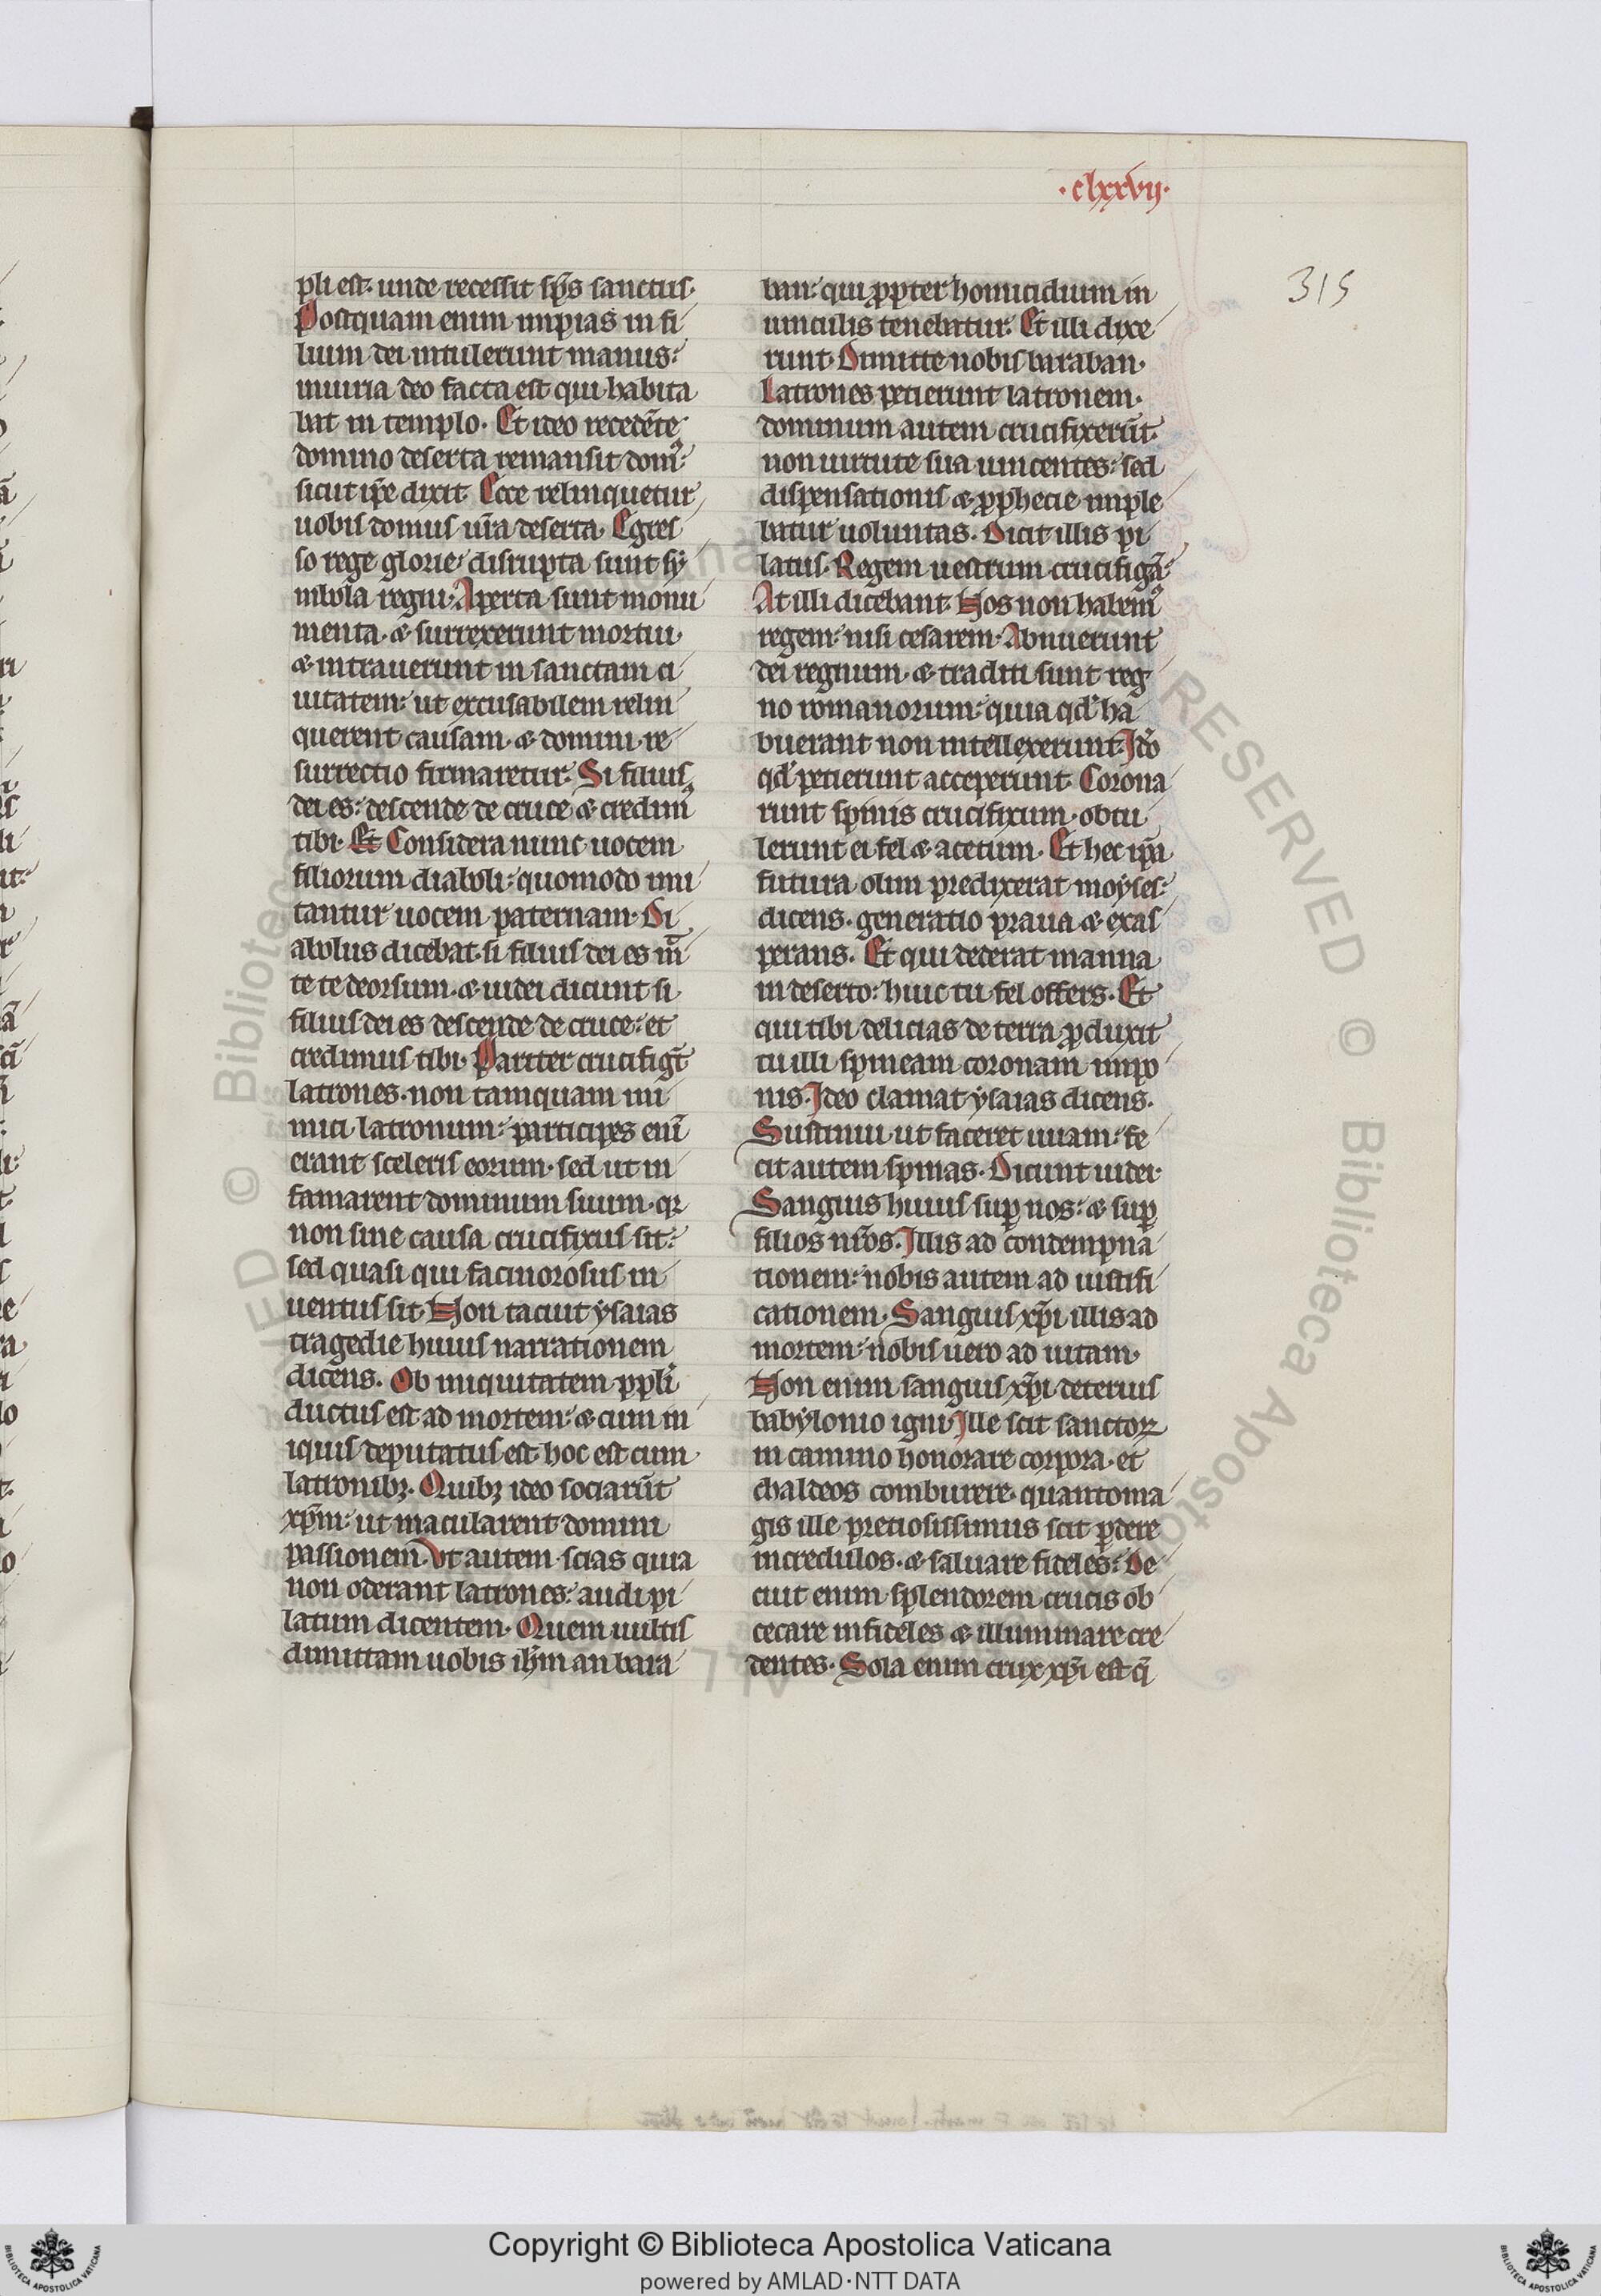 ·clxxvij·
315
pli est· unde recessit sp̄s sanctus·
Postquam enim impias in fi
lium dei intulerunt manus:
iniuria deo facta est qui habita
bat in templo· Et ideo recedēte
domino deserta remansit domꝰ:
sicut ip̄e dixit· Ecce relinquetur
uobis domus ur̄a deserta· Egres
so rege glorie· disrupta sunt sẏ
mbola regni· Aperta sunt monu
menta· & surrexerunt mortui·
& intrauerunt in sanctam ci
uitatem: ut excusabilem relin
querent causam· & domini re
surrectio firmaretur· Si filius
dei es: descende de cruce & credimꝰ
tibi· Et Considera nunc uocem
filiorum diaboli: quomodo imi
tantur uocem paternam· Di
abolus dicebat· si filius dei es mit̄
te te deorsum· & iudei dicunt si
filius dei es descende de cruce: et
credimus tibi· Pariter crucifigūt
latrones· non tamquam ini
mici latronum: participes enī
erant sceleris eorum· sed ut in
famarent dominum suum· qꝛ
non sine causa crucifixus sit:
sed quasi qui facinorosus in
uentus sit· Non tacuit ẏsaias
tragedie huius narrationem
dicens· Ob iniquitatem ppl̄i
ductus est ad mortem: & cum in
iquis deputatus est hoc est cum
latronibꝫ· Quibꝫ ideo sociarūt
xp̄m: ut macularent domini
passionem· Vt autem scias quia
non oderant latrones: audi pi
latum dicentem· Quem uultis
dimittam uobis ih̄m an bara
ban: qui ꝓpter homicidium in
uinculis tenebatur· Et illi dixe
runt· Dimitte nobis baraban·
Latrones petierunt latronem·
dominum autem crucifixerūt·
non uirtute sua uincentes: sed
dispensationis & ꝓphecie imple
batur uoluntas· Dicit illis pi
latus· Regem uestrum crucifigā:
At illi dicebant· Nos non habemꝰ
regem: nisi cesarem· Abnuerunt
dei regnum· & traditi sunt reg
no romanorum: quia qd̓ ha
buerant non intellexerunt· Id̓o
qd̓ petierunt acceperunt· Corona
runt spinis crucifixum· obtu
lerunt ei fel & acetum· Et hec ip̄a
futura olim predixerat moẏses:
dicens· generatio praua & exas
perans· Et qui dederat manna
in deserto: huic tu fel offers· Et
qui tibi delicias de terra ꝓduxit
tu illi spineam coronam impo
nis· Ideo clamat ẏsaias dicens·
Sustinui ut faceret uuam: fe
cit autem spinas· Dicunt iudei·
Sanguis huius suꝑ nos: & suꝑ
filios nr̄os· Illis ad condempna
tionem: nobis autem ad iustifi
cationem· Sanguis xp̄i illis ad
mortem: nobis uero ad uitam·
Non enim sanguis xp̄i deterius
babẏlonio igni· Ille scit sanctoꝝ
in camino honorare corpora· et
chaldeos comburere· quanto ma
gis ille pretiosissimus scit ꝑdere
incredulos· & saluare fideles: De
cuit enim splendorem crucis ob
cecare infideles & illuminare cre
dentes· Sola enim crux xp̄i est q̄
Copyright © Biblioteca Apostolica Vaticana
powered by AMLAD·NTT DATA